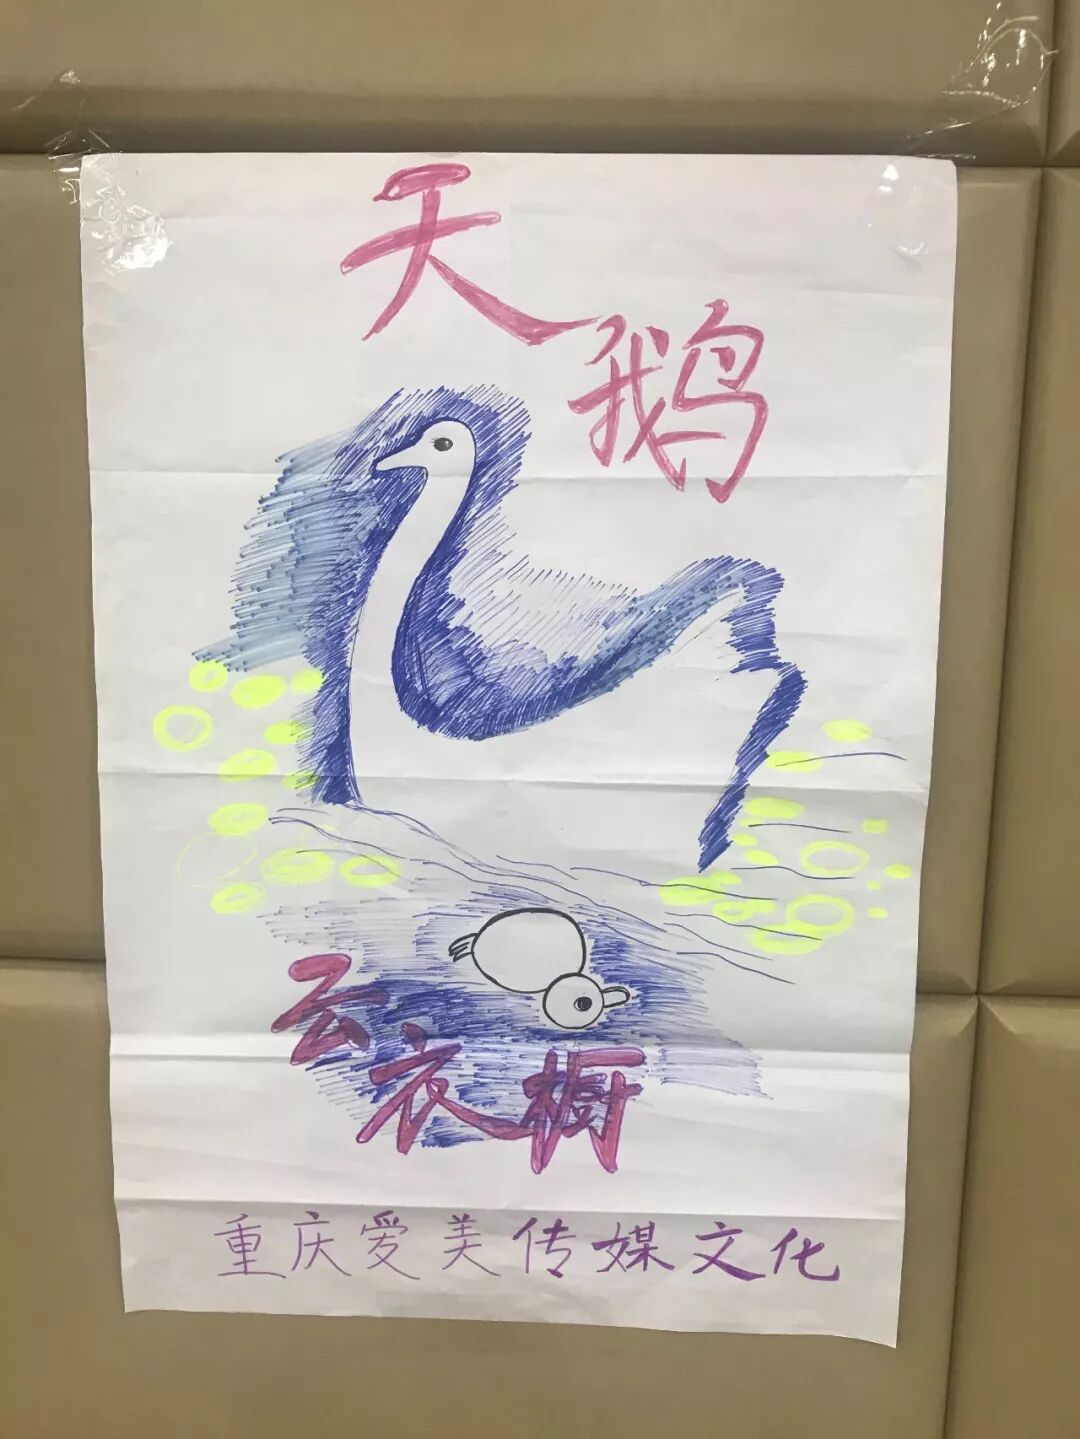 天鹅
云衣橱
重庆爱美传媒文化